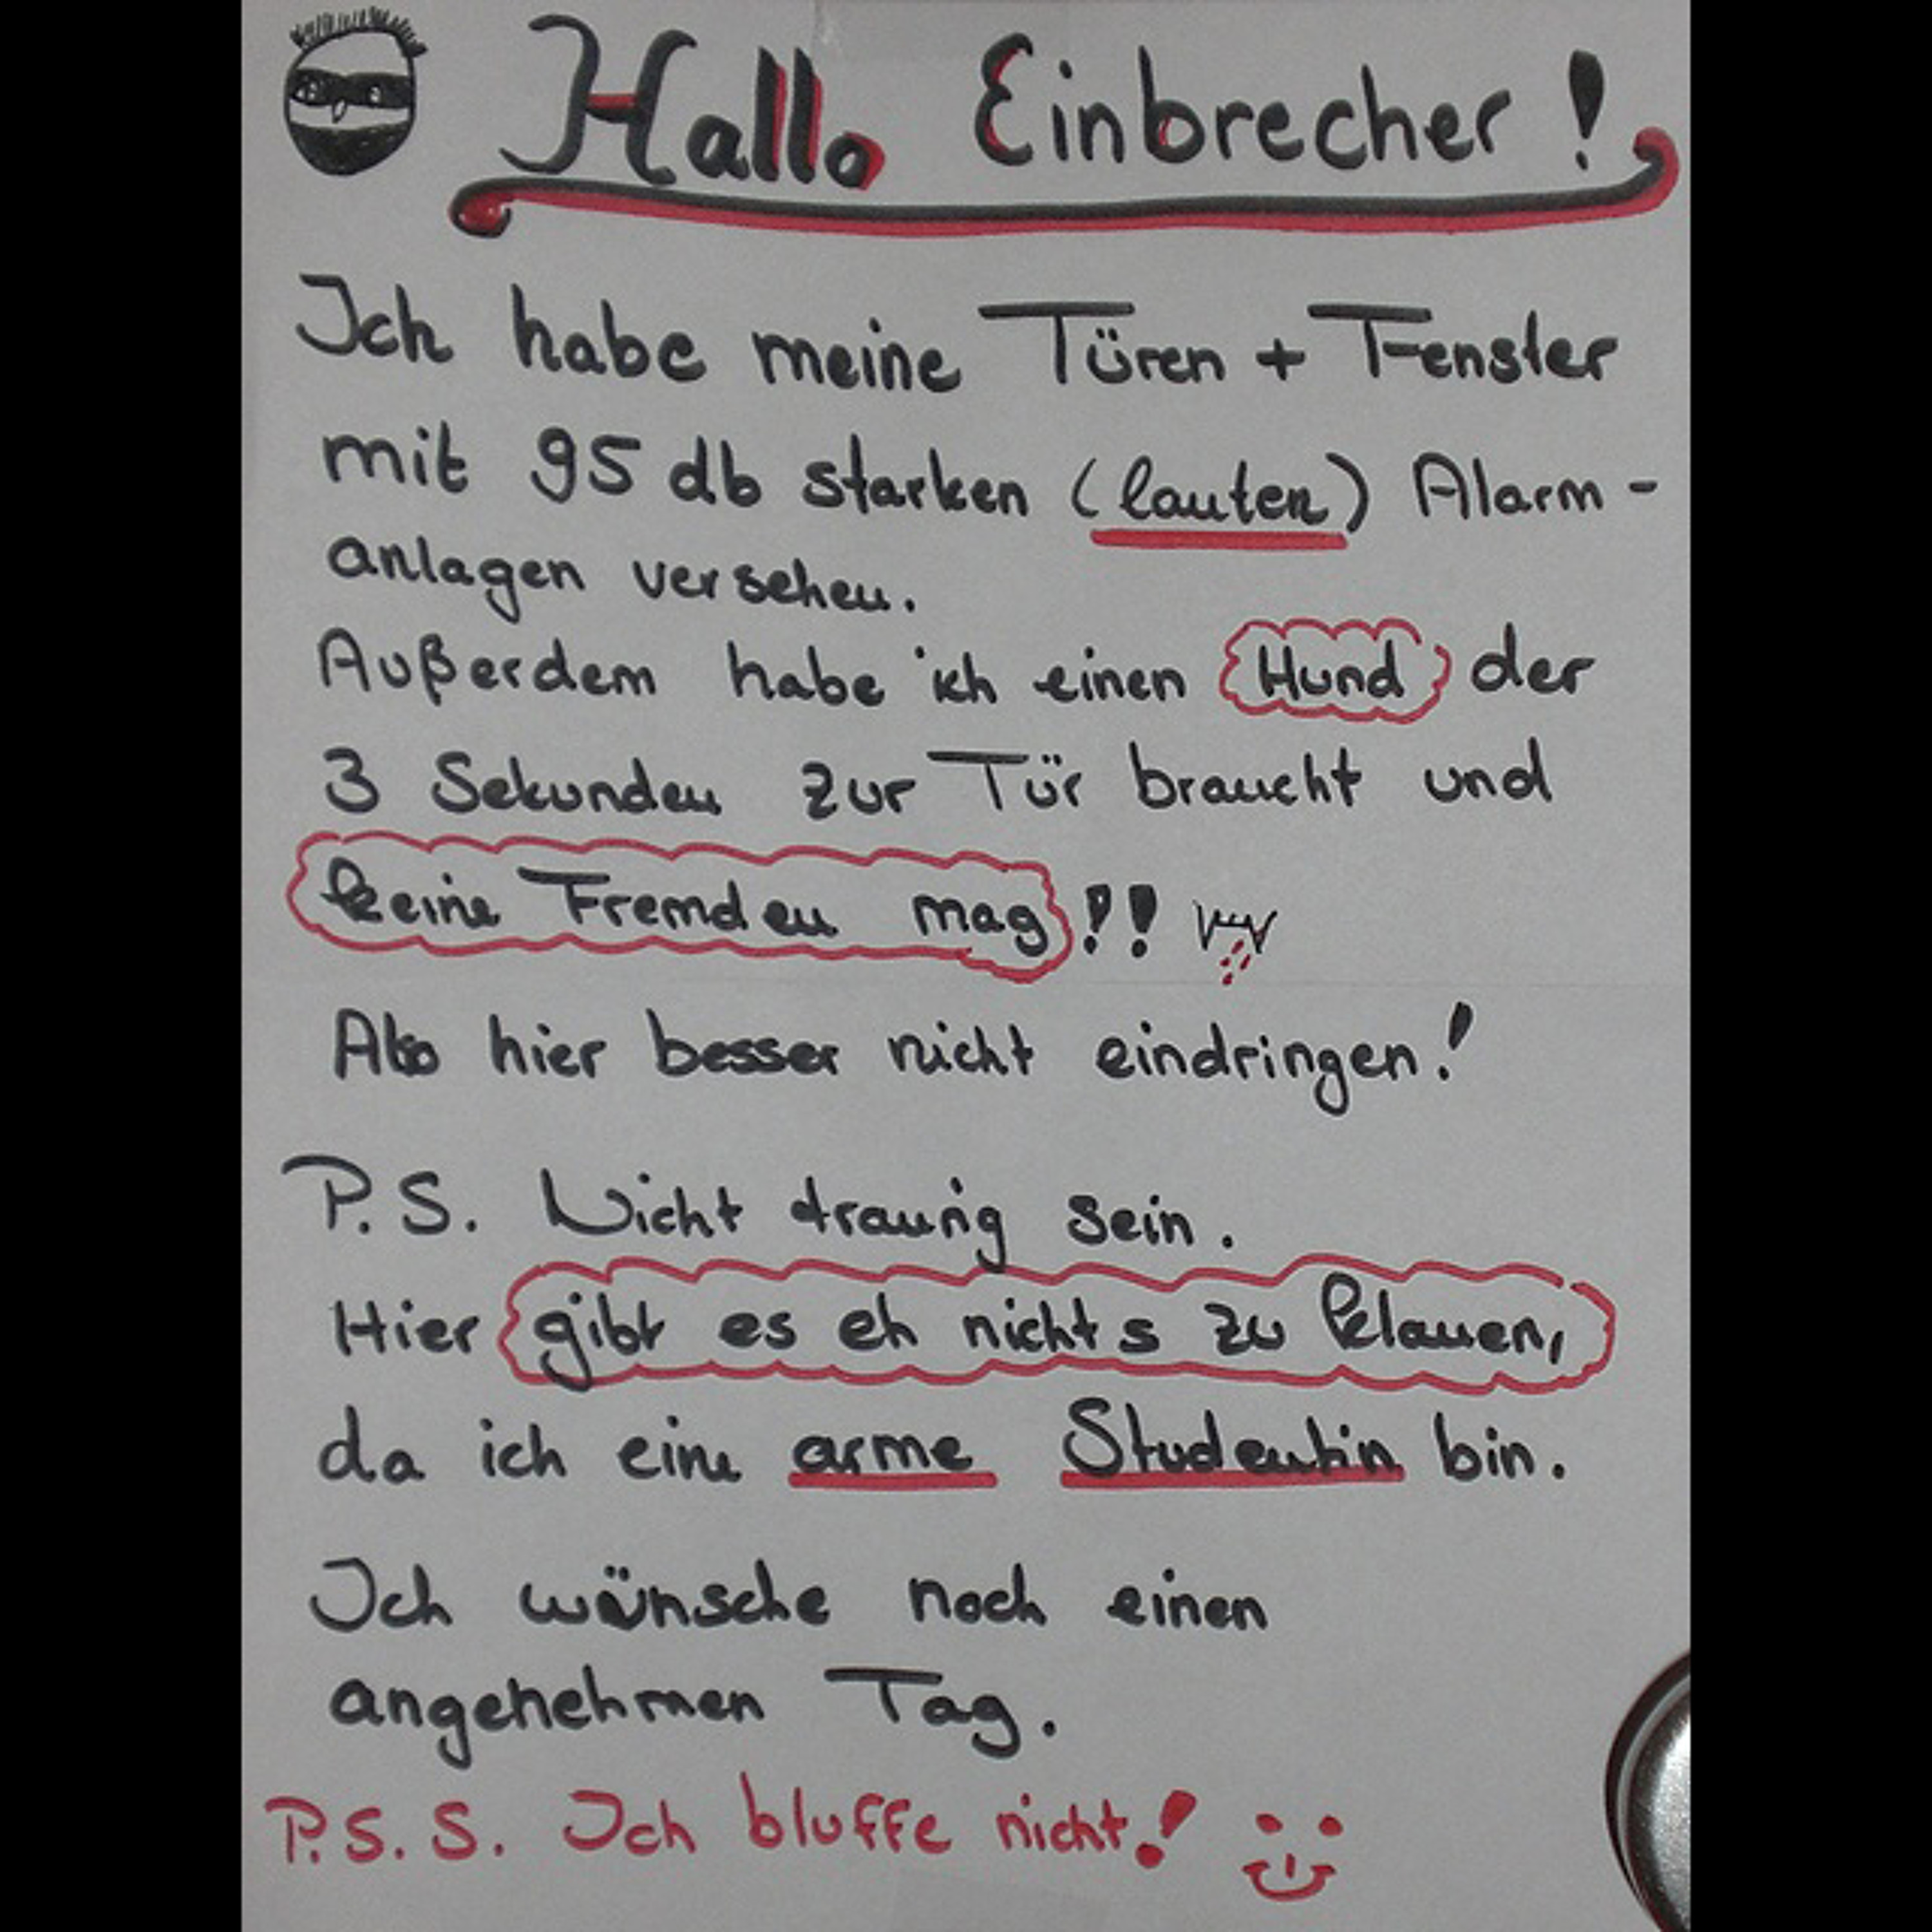 Hallo Einbrecher!
Ich habe meine Türen + Fenster
mit 95 db starken (lauten) Alarm-
anlagen versehen.
Außerdem habe ich einen Hund der
3 Sekunden zur Tür braucht und
keine Fremden mag!!
Also hier besser nicht eindringen!
P.S. Nicht traurig sein.
Hier gibt es eh nichts zu klauen,
da ich eine arme Studentin bin.
Ich wünsche noch einen
angenehmen Tag.
P.S.S. Ich bluffe nicht!